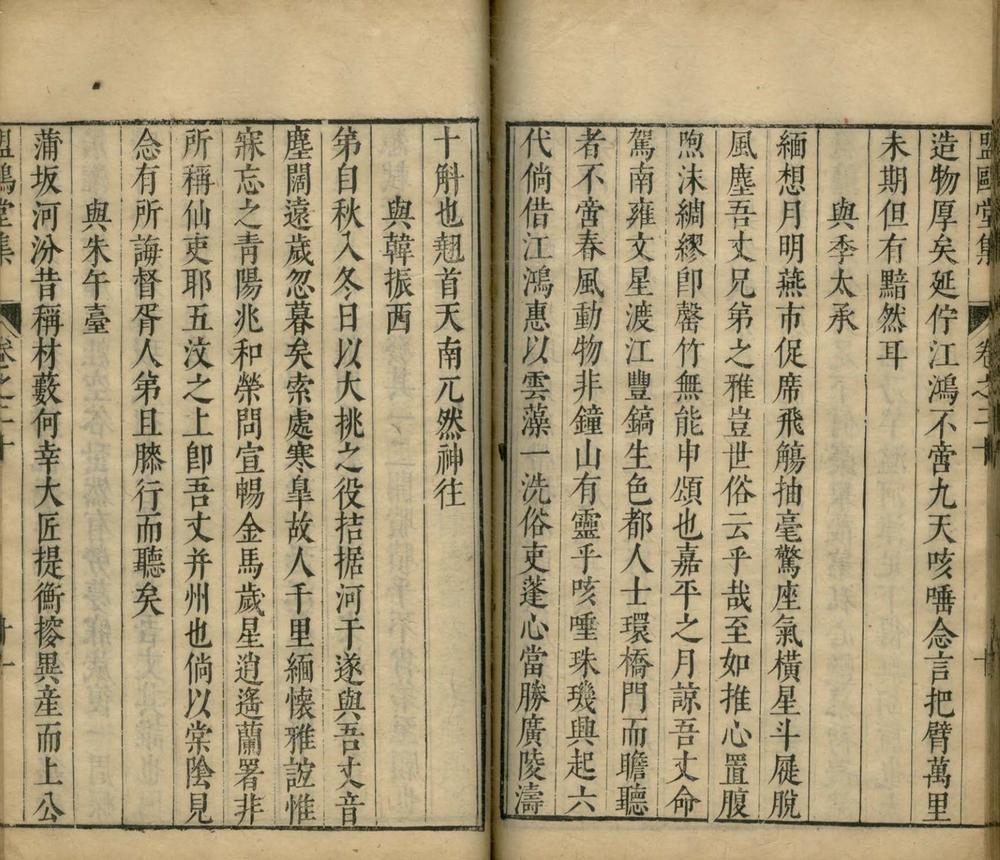 盟鷗堂集 卷之二十 十
造物厚矣延佇江鴻不啻九天咳唾念言把臂萬里
未期但有黯然耳
與李太承
緬想月明燕市促席飛觴抽毫驚座氣橫星斗屣脫
風塵吾丈兄弟之雅豈世俗云乎哉至如推心置腹
喣沫綢繆卽罄竹無能申頌也嘉平之月諒吾丈命
駕南雍文星渡江豐鎬生色都人士環橋門而瞻聽
者不啻春風動物非鐘山有靈乎咳唾珠璣興起六
代倘借江鴻惠以雲藻一洗俗吏蓬心當勝廣陵濤
十斛也翹首天南兀然神往
與韓振西
第自秋入冬日以大挑之役拮据河干遂與吾丈音
塵闊遠歲忽暮矣索處寒皐故人千里緬懷雅誼惟
寐忘之青陽兆和榮問宣暢金馬歲星逍遙蘭署非
所稱仙吏耶五汶之上卽吾丈并州也倘以棠陰見
念有所誨督胥人第且膝行而聽矣
與朱午臺
蒲坂河汾昔稱材藪何幸大匠提衡搜異産而上公
盟鷗堂集 卷之二十 十一